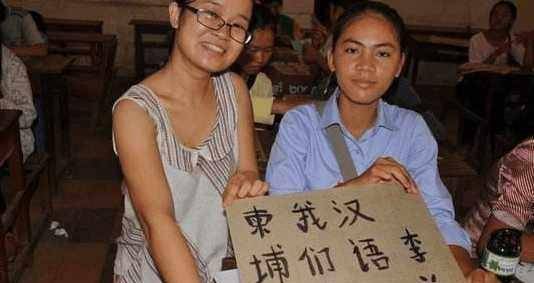 柬埔
我们
汉语
李